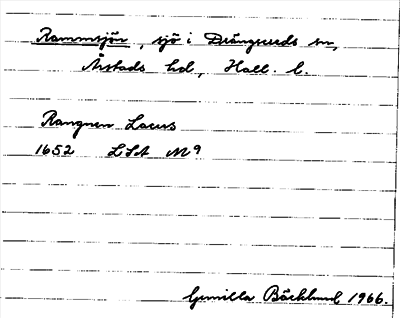 Rammsjön, sjö i Drängsereds sn,
Årstads hd, Hall. l.
Rangnen Lacus
1652 LSA M9
Gunilla Bäcklund 1966.